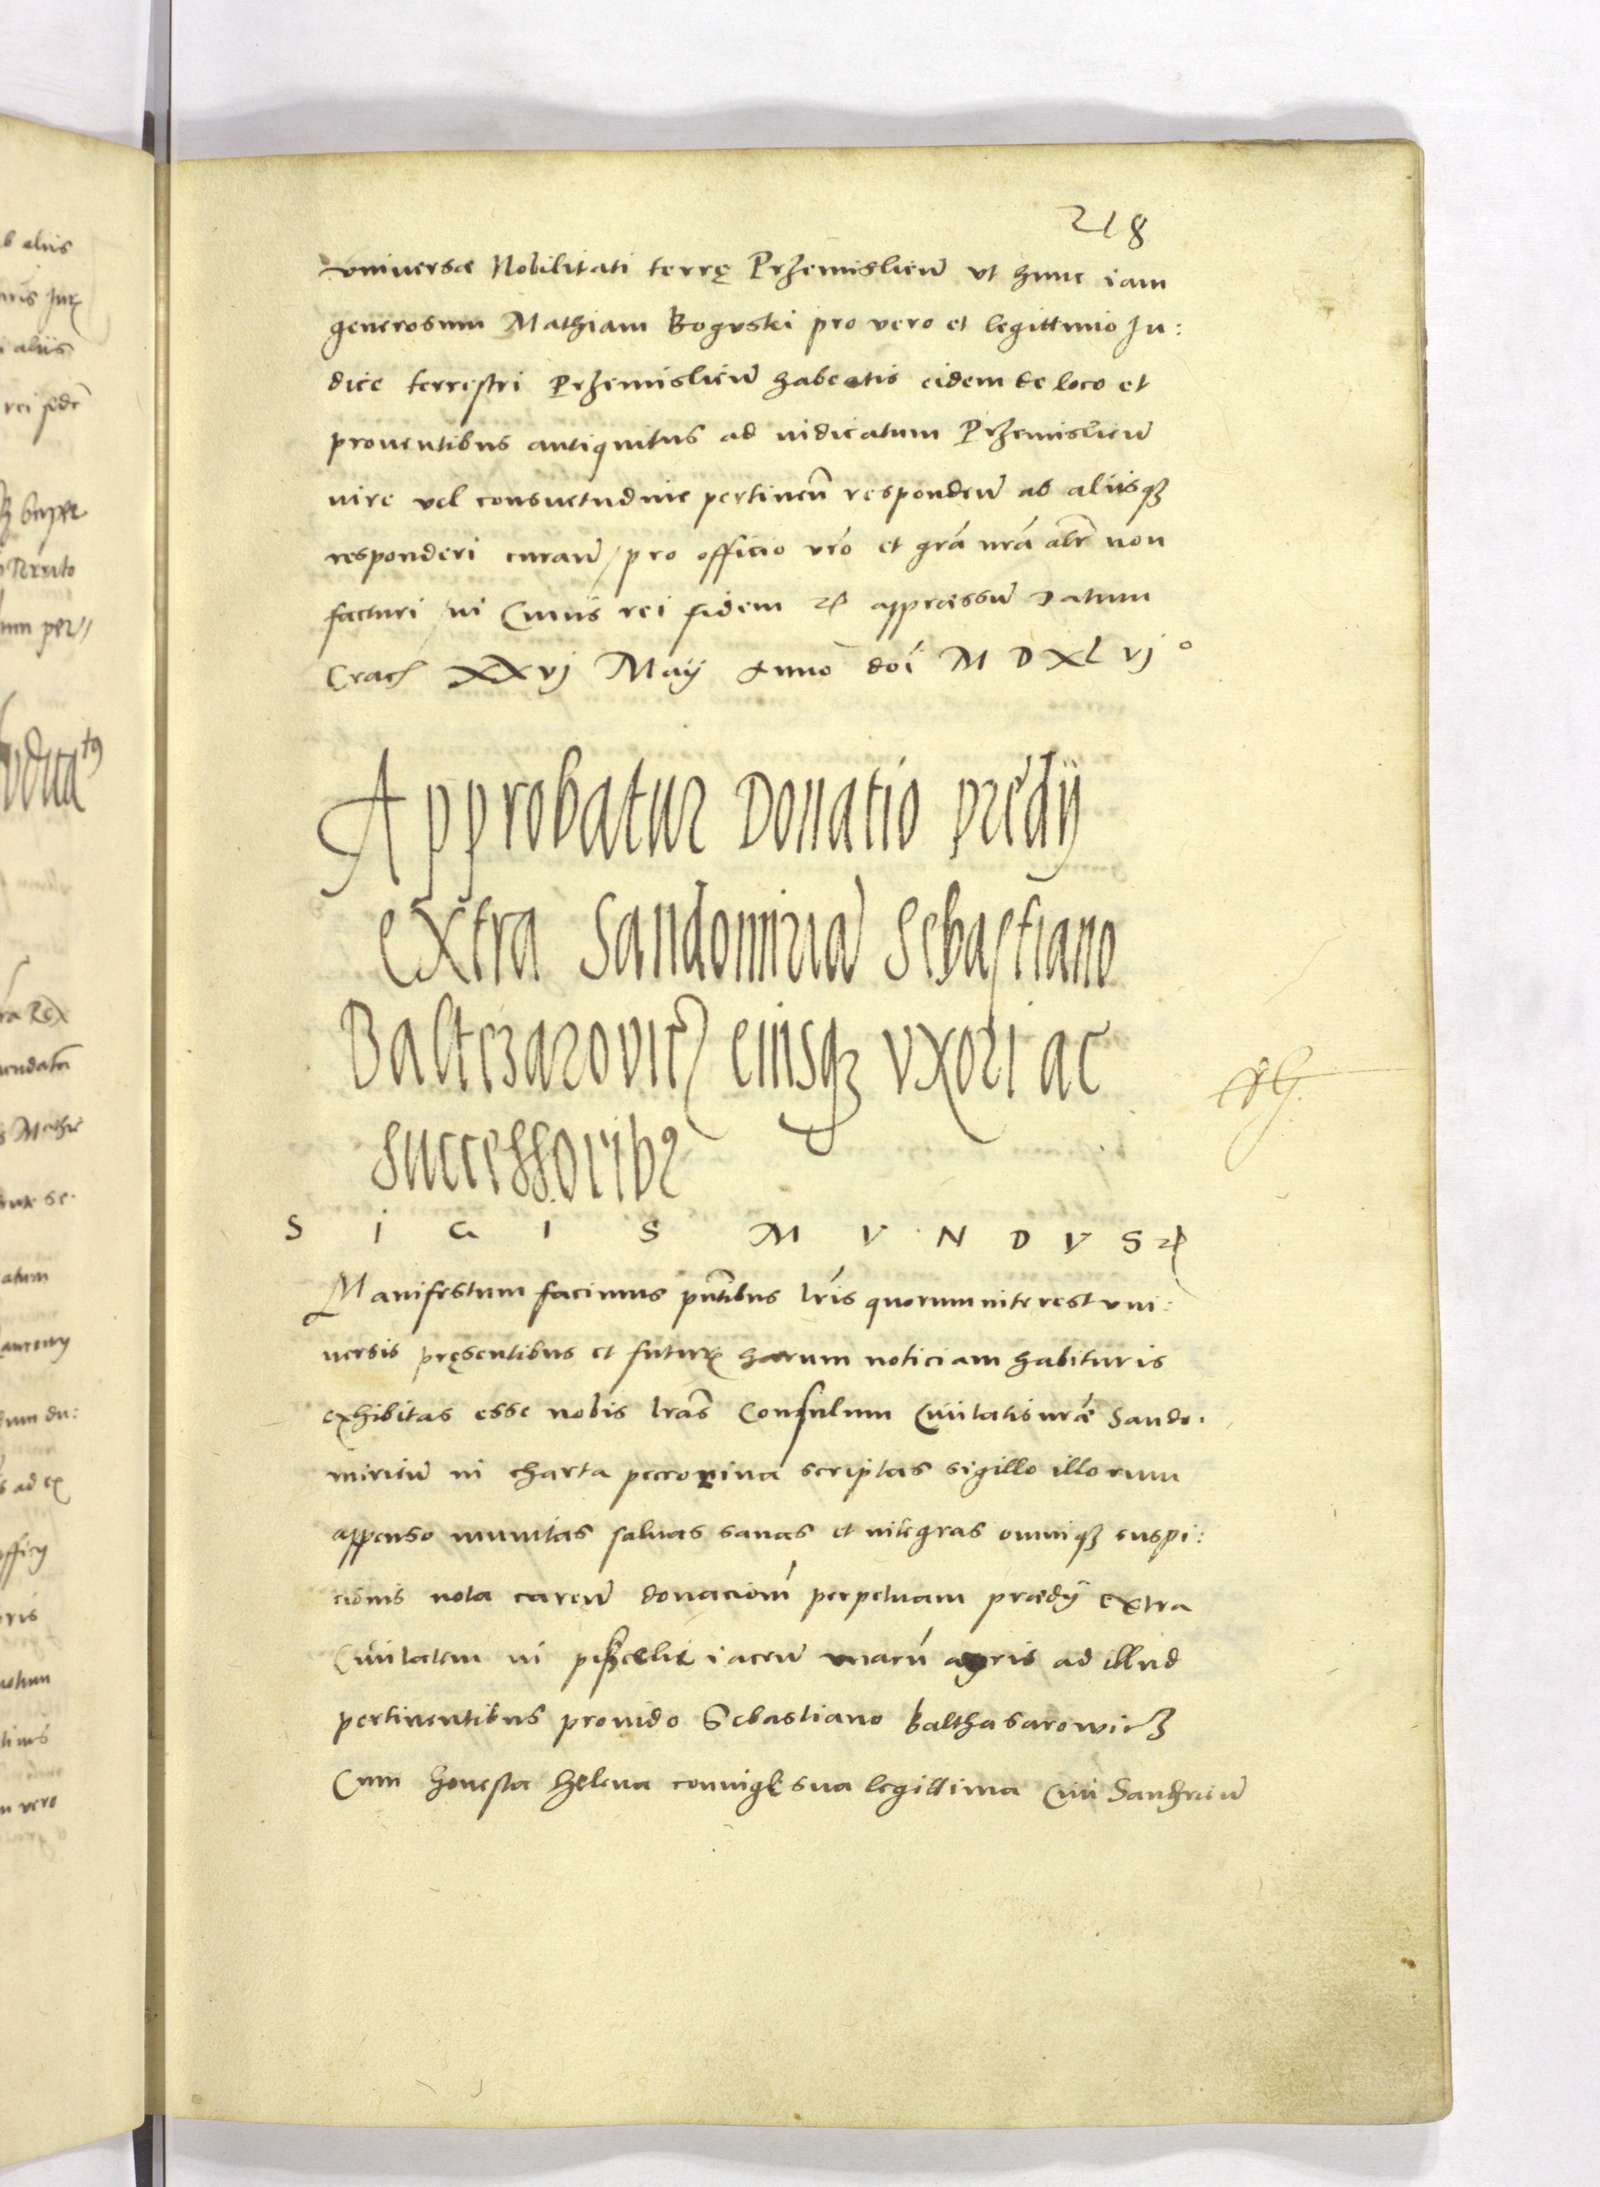 218
vniversæ Nobilitati terrę Przemislień vt hunc iam
generosum Mathiam Boguski pro vero et legittimo Ju:
dice terrestri Przemislień habeatis eidem de loco et
proventibus antiquitus ad iudicatum Przemislień
iure vel consuetudine pertineñ respondeañ ab aliisqȝ
responderi curañ / pro officio vrõ et grã nrã altr non
facturi / in Cuius rei fidem ꝛc appressuñ Datum
Crac XXvj Maij Anno doi M D XL vj°
Approbatur Donatio prędij
extra Sandomiria Sebastiano
Baltezarovicz eiusqȝ vxori ac
successoribꝰ
S I G I S M V N D V S ꝛc
Manifestum facimus pñtibus lris quorum interest vni:
versis pręsentibus et futurꝭ harum noticiam habituris
exhibitas esse nobis lras Consulum Civitatis nræ Sando:
mirień in charta pecorina scriptas sigillo illorum
appenso munitas salvas sanas et integras omniqȝ suspi:
cionis nota careñ donacioni perpetuam prædij extra
Civitatem in iaceñ agris ad illud
pertinentibus provido Sebastiano Balthasarowicz
Cum honesta Helena coniuge sua legittima Civi Sandrień